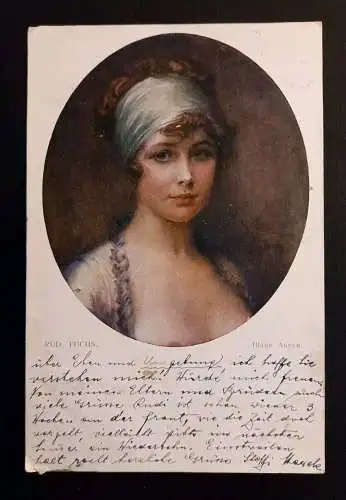 RUD. FUCHS.
Blaue Augen.
über Eben und Umgebung, ich hoffe Sie
verstehen mich. Würde mich freuen
Von meinen Eltern und sind
viele Grüsse Rudi ist schon wieder 3
Wochen an der Front, wie die Zeit doch
vergeht, vielleicht gibts im nächsten
ein Wiedersehn. Einstweilen
herzliche Grüsse Steffi